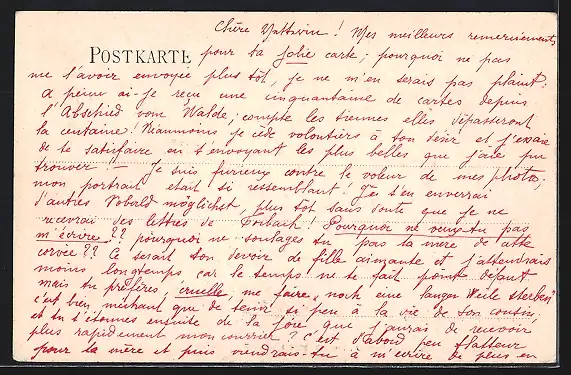 Chère Mattwin! Mes meilleurs remerciements
POSTKARTE pour ta jolie carte; pourquoi ne pas
me l'avoir envoyée plus tôt, je ne m'en serais pas plaint:
à peine ai-je reçu une cinquantaine de cartes depuis
l'Abschied vom Walde; compte les tiennes elles dépasseront
la centaine! Néanmoins je cède volontiers à ton désir et j'essaie
de te satisfaire en t'envoyant les plus belles que j'aie pu
trouver. — Je suis furieux contre le voleur de mes photos,
mon portrait était si ressemblant! Je t'en enverrai
d'autres sobald möglichst, plus tôt sans doute que je ne
recevrai des lettres de Forbach! Pourquoi ne veux-tu pas
m'écrire?? pourquoi ne soulages tu pas ta mère de cette
corvée?? Ce serait ton devoir de fille aimante et j'attendrais
moins longtemps car le temps ne te fait point défaut
mais tu préfères, cruelle, me faire "noch eine lange Weile sterben"
c'est bien méchant que de tenir si peu à la vie de son cousin,
et tu t'étonnes ensuite de la joie que j'aurais de recevoir
plus rapidement mon courrier? C'est d'abord peu flatteur
pour ta mère et puis viendrais-tu à m'écrire de plus en